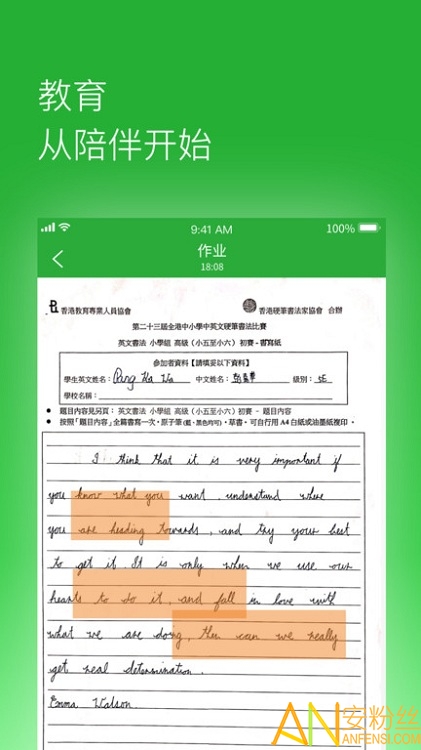 教育
从陪伴开始
9:41 AM
100%
作业
18:08
香港教育專業人員協會
香港硬筆書法家協會 合辦
第二十三屆全港中小學中英文硬筆書法比賽
英文書法 小學組 高級（小五至小六）初賽 - 書寫紙
參加者資料【請填妥以下資料】
學生英文姓名： Pang Ka Wa 中文姓名： 級別： 5E
學校名稱：
● 題目內容見另頁： 英文書法 小學組 高級（小五至小六）初賽 - 題目內容
● 按照「題目內容」全篇書寫一次，原子筆（藍、黑色均可），草書。可自行用 A4 白紙或油墨紙複印。
I think that it is very important if
you know what you want, understand where
you are heading towards, and try your best
to get it. It is only when we use our
hearts to do it, and fall in love with
what we are doing, then can we really
get real determination.
Emma Watson
安粉丝
ANFENSI.COM